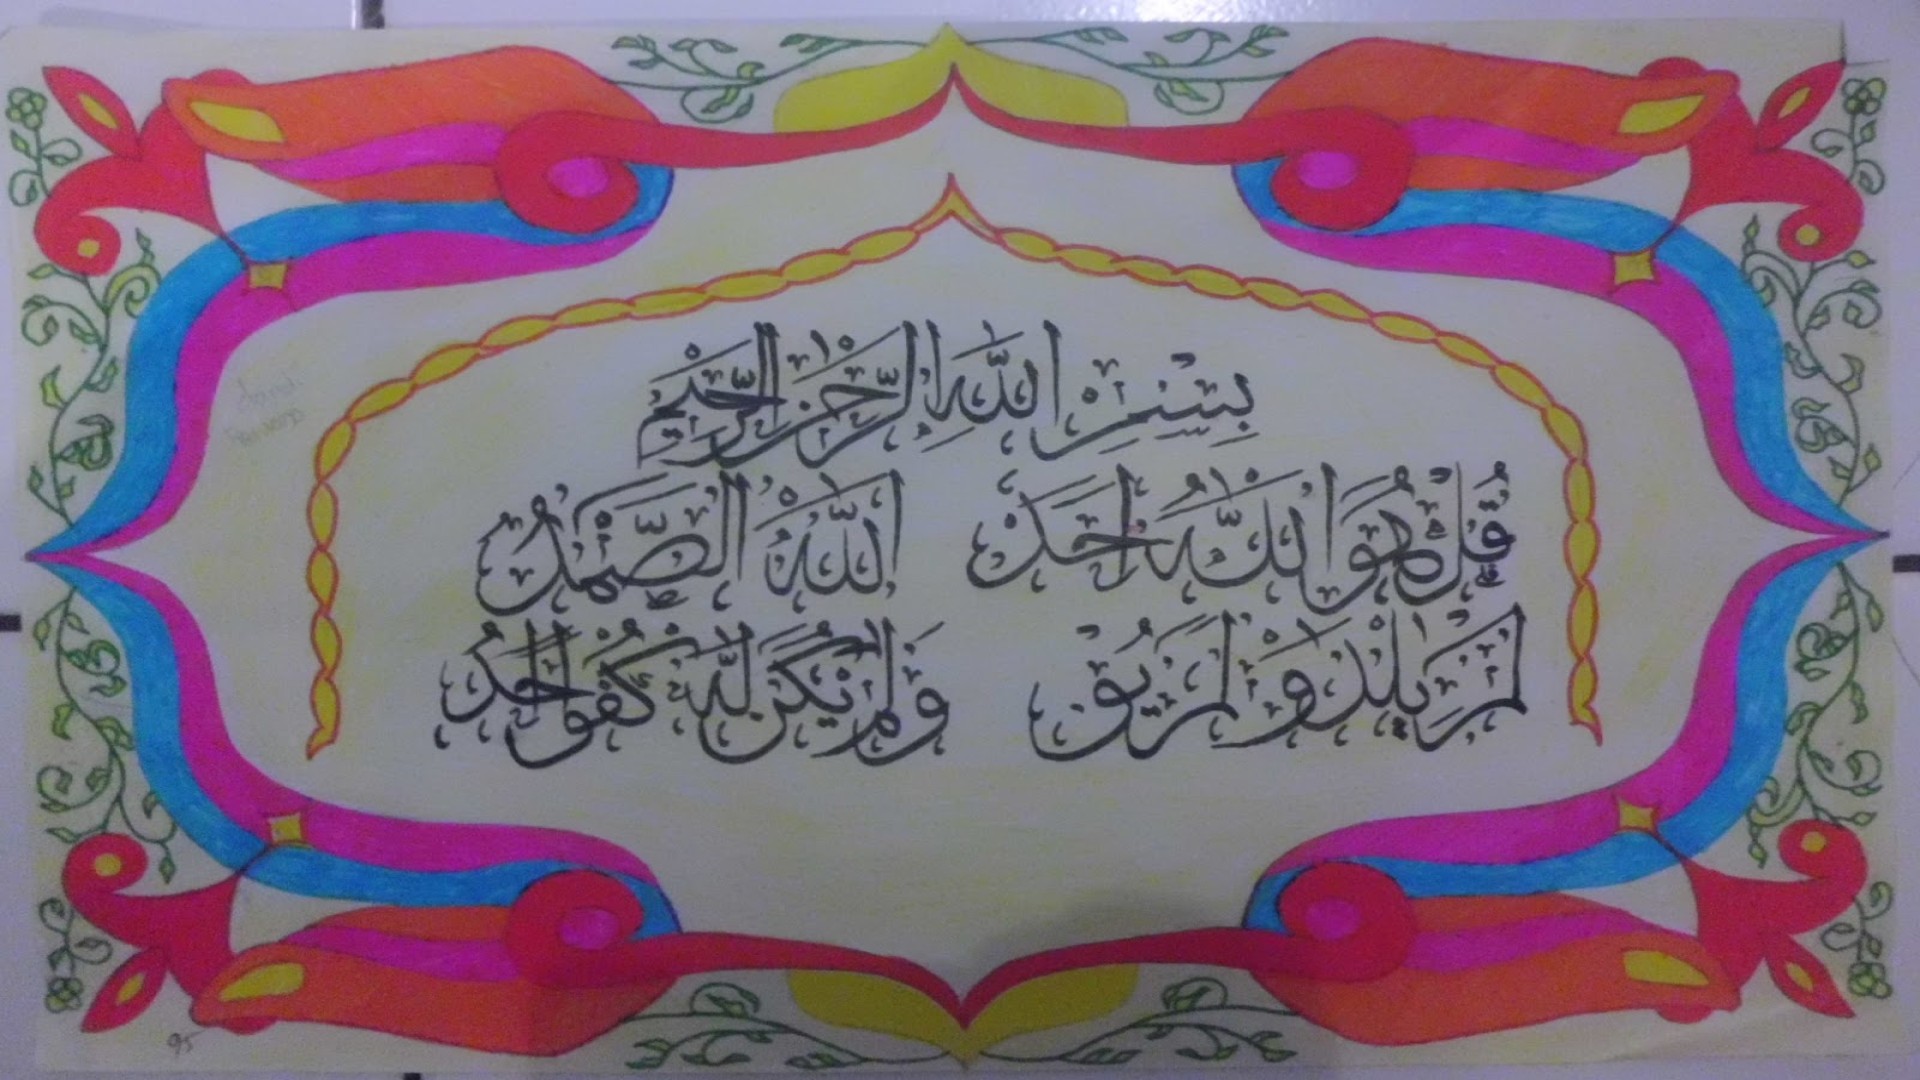 بِسْمِ اللّٰهِ الرَّحْمٰنِ الرَّحِيْمِ
قُلْ هُوَ اللّٰهُ اَحَدٌ اَللّٰهُ الصَّمَدُ
لَمْ يَلِدْ وَلَمْ وَلَمْ يَكُنْ لَّهُ كُفُوًا اَحَدٌ
95